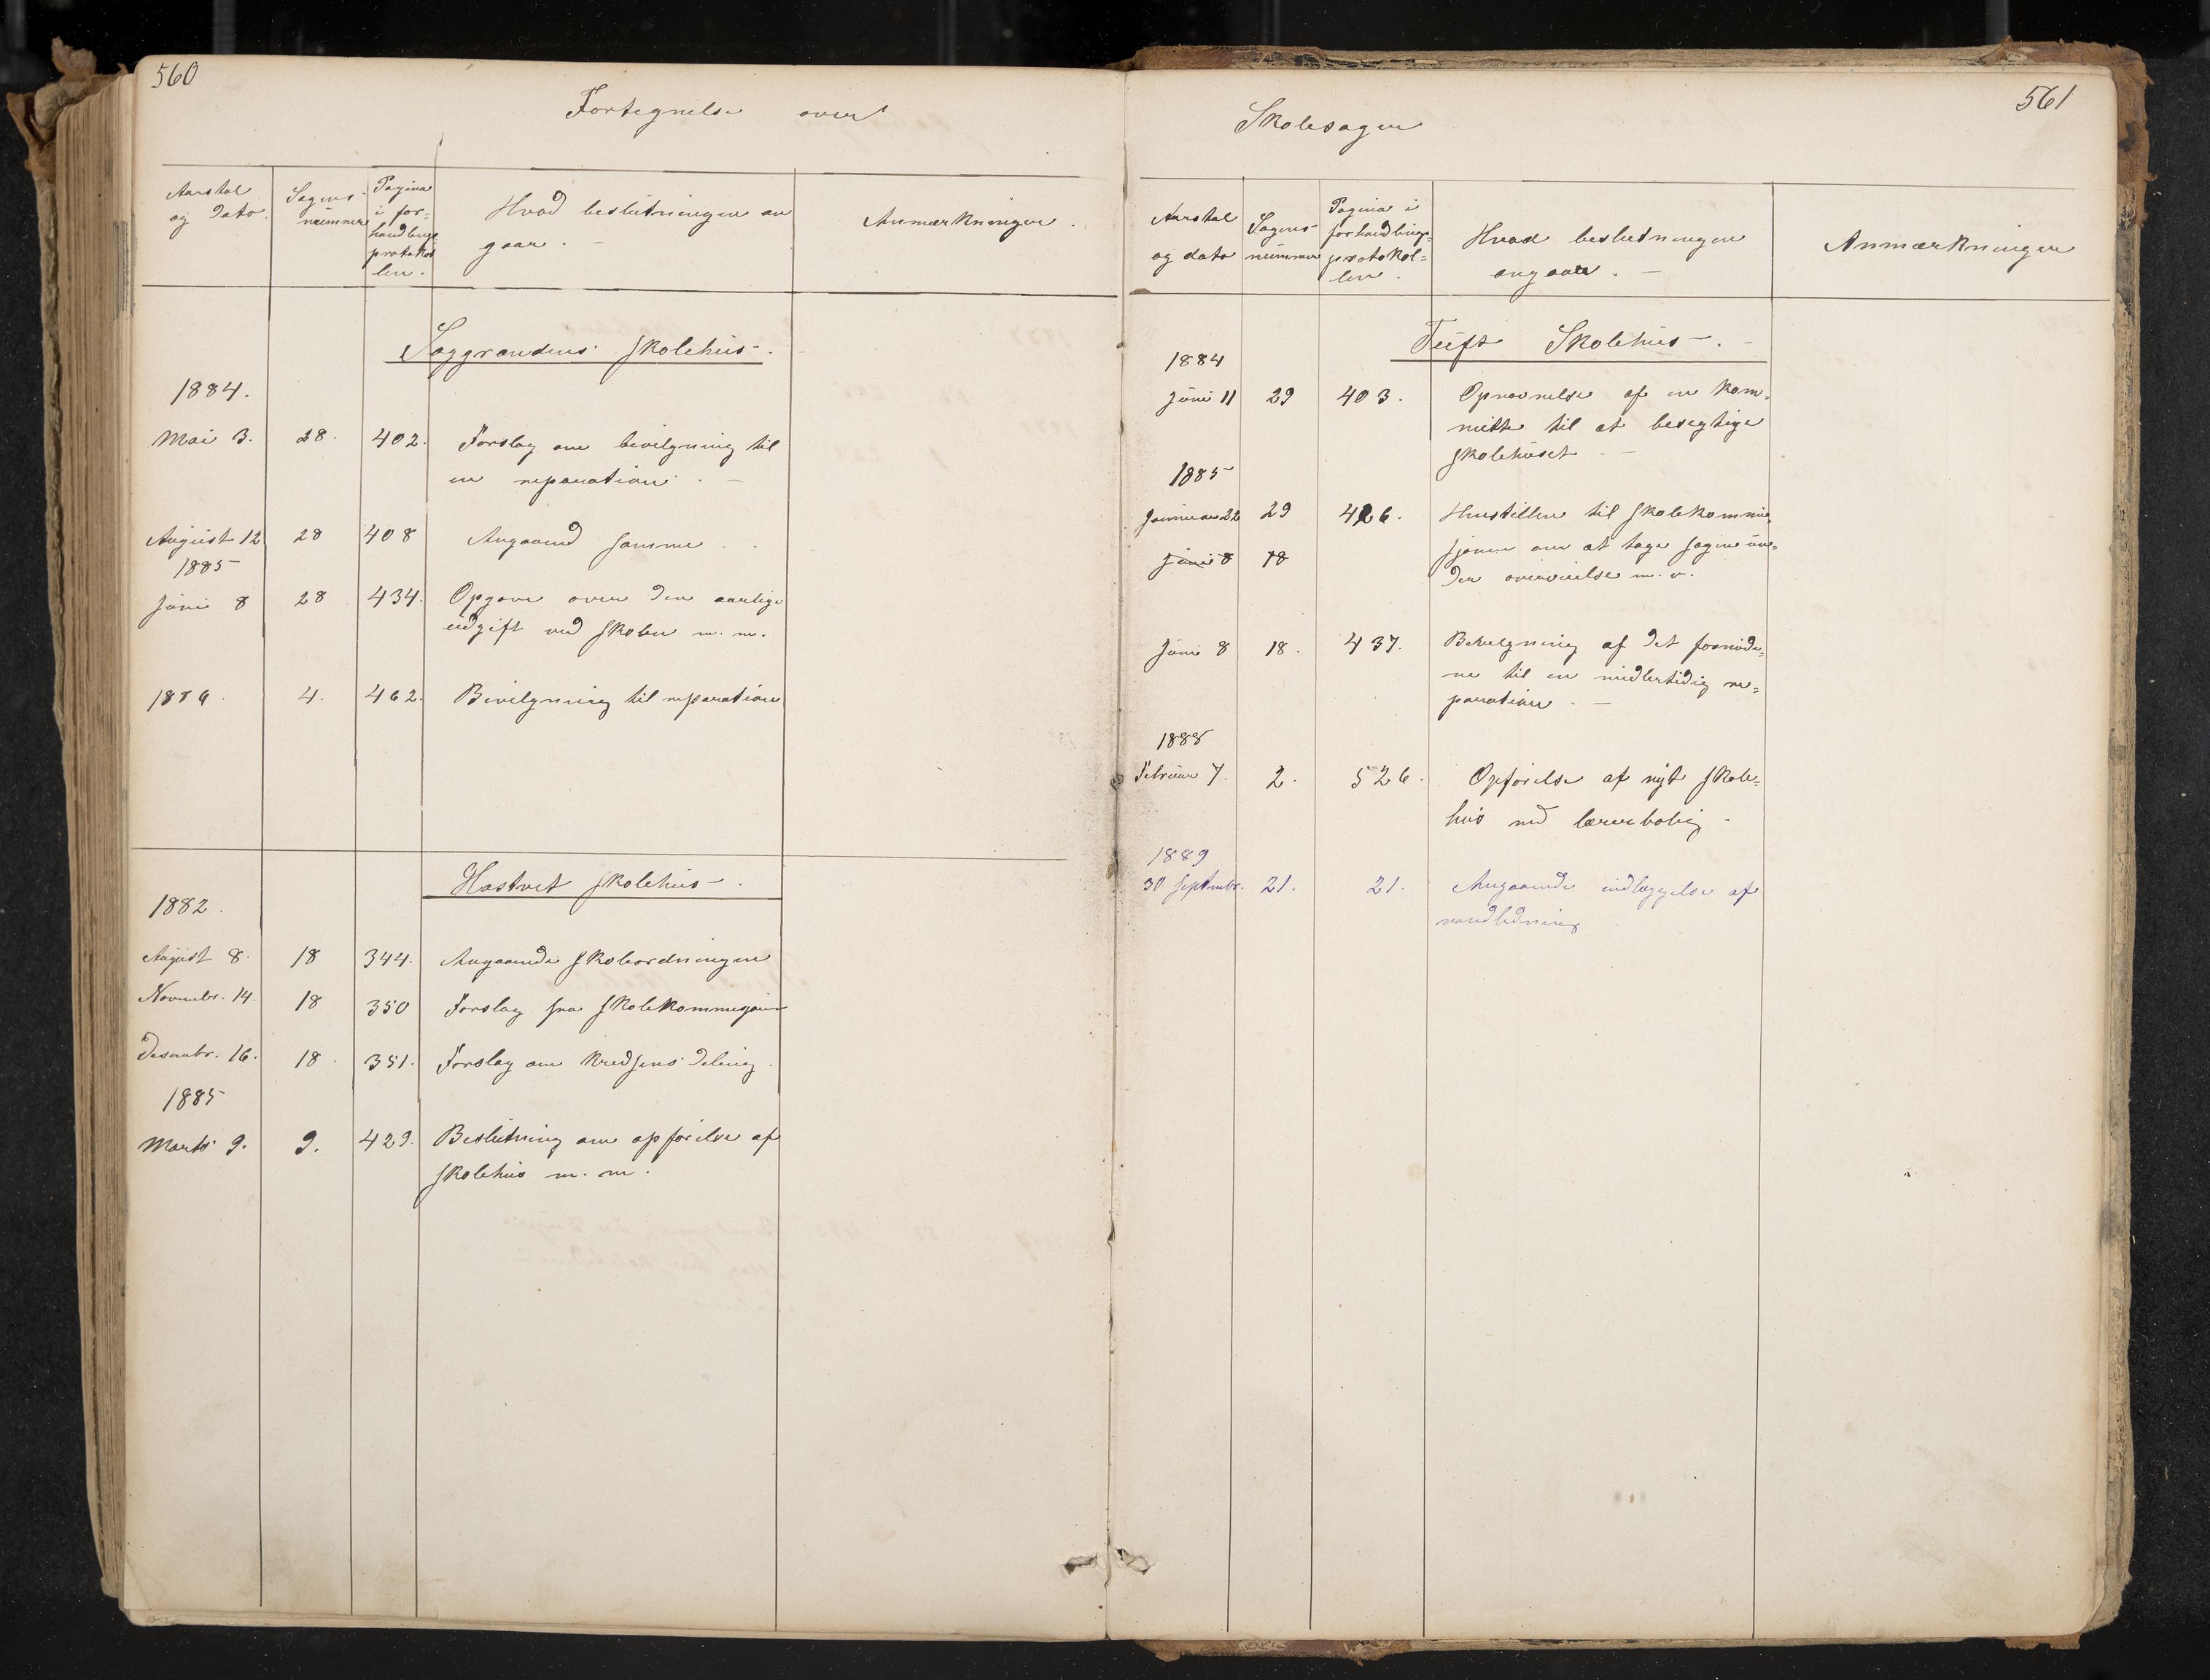 560
Fortegnelse over
Aarstal og Dato.
Sagens nummer
Pagina i for=handlingsprotokollen.
Hvad beslutningen angaar.
Anmærkninger.
Saggrendens skolehus.
1884.
Mai 3. 28. 402. Forslag om bevilgning til
en reparation. —
August 12 28 408 Angaaend samme.
1885
Juni 8 28 434. Opgave over den aarlige
udgift ved skolen m. m.
1886. 4. 462. Bevilgning til reparation
Hastvet skolehus.
1882.
August 8. 18 344. Angaaende skoleordningen
Novembr. 14. 18 350 Forslag fra skolekommisjonen
Desembr. 16. 18. 351. Forslag om kredsens deling.
1885
Marts 9. 9. 429. Beslutning om opførelse af
skolehus m. m.
561
Skolesager
Aarstal og dato
Sagens nummer
Pagina i forhandlings=protokol=len.
Hvad beslutningen angaar. —
Anmærkninger
Tuft Skolehus. —
1884
Juni 11 29 403. Opnævnelse af en kom=
mitte til at besegtige
skolehuset. —
1885
Januar 22 29 426. Henstillen til skolekommis=
Juni 8 18 sjonen om at tage sagen un=
der overveielse m. v.
Juni 8 18. 437. Bevilgning af det fornødne
til en midlertidig re=
paration. —
1888
Februar 7. 2. 526. Opførelse af nyt skole=
hus med lærerbolig.
1889
30 Septembr. 21. 21. Angaaende indlæggelse af
vandledning